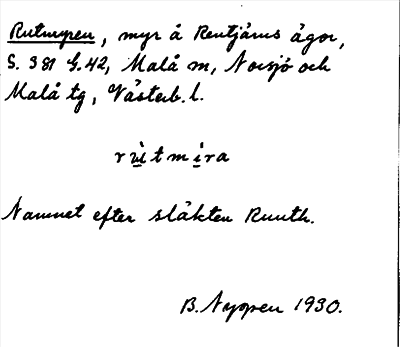 Rutmyren, myr å Rentjärns ägor,
S. 381 G. 42, Malå m, Norsjö och
Malå tg, Västerb. l.
rùtmìra
Namnet efter släkten Ruuth.
B. Nyssen 1930.